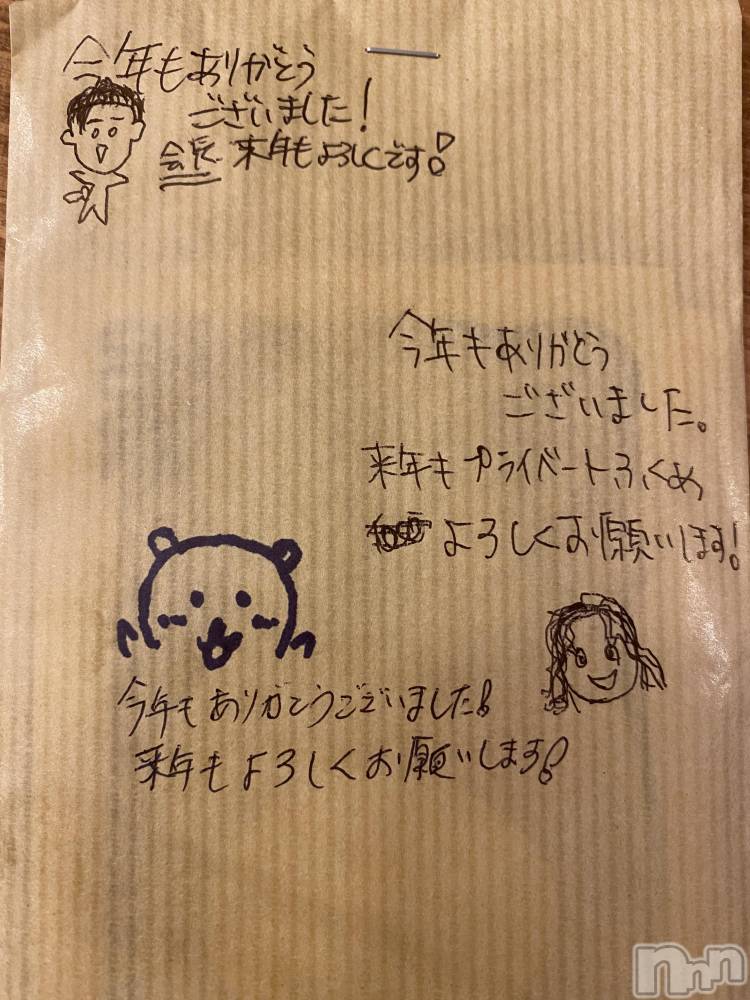 今年もありがとう
ございました！
会長 来年もよろしくです！
今年もありがとう
ございました。
来年もプライベートふくめ
よろしくお願いします！
今年もありがとうございました！
来年もよろしくお願いします！
nnn